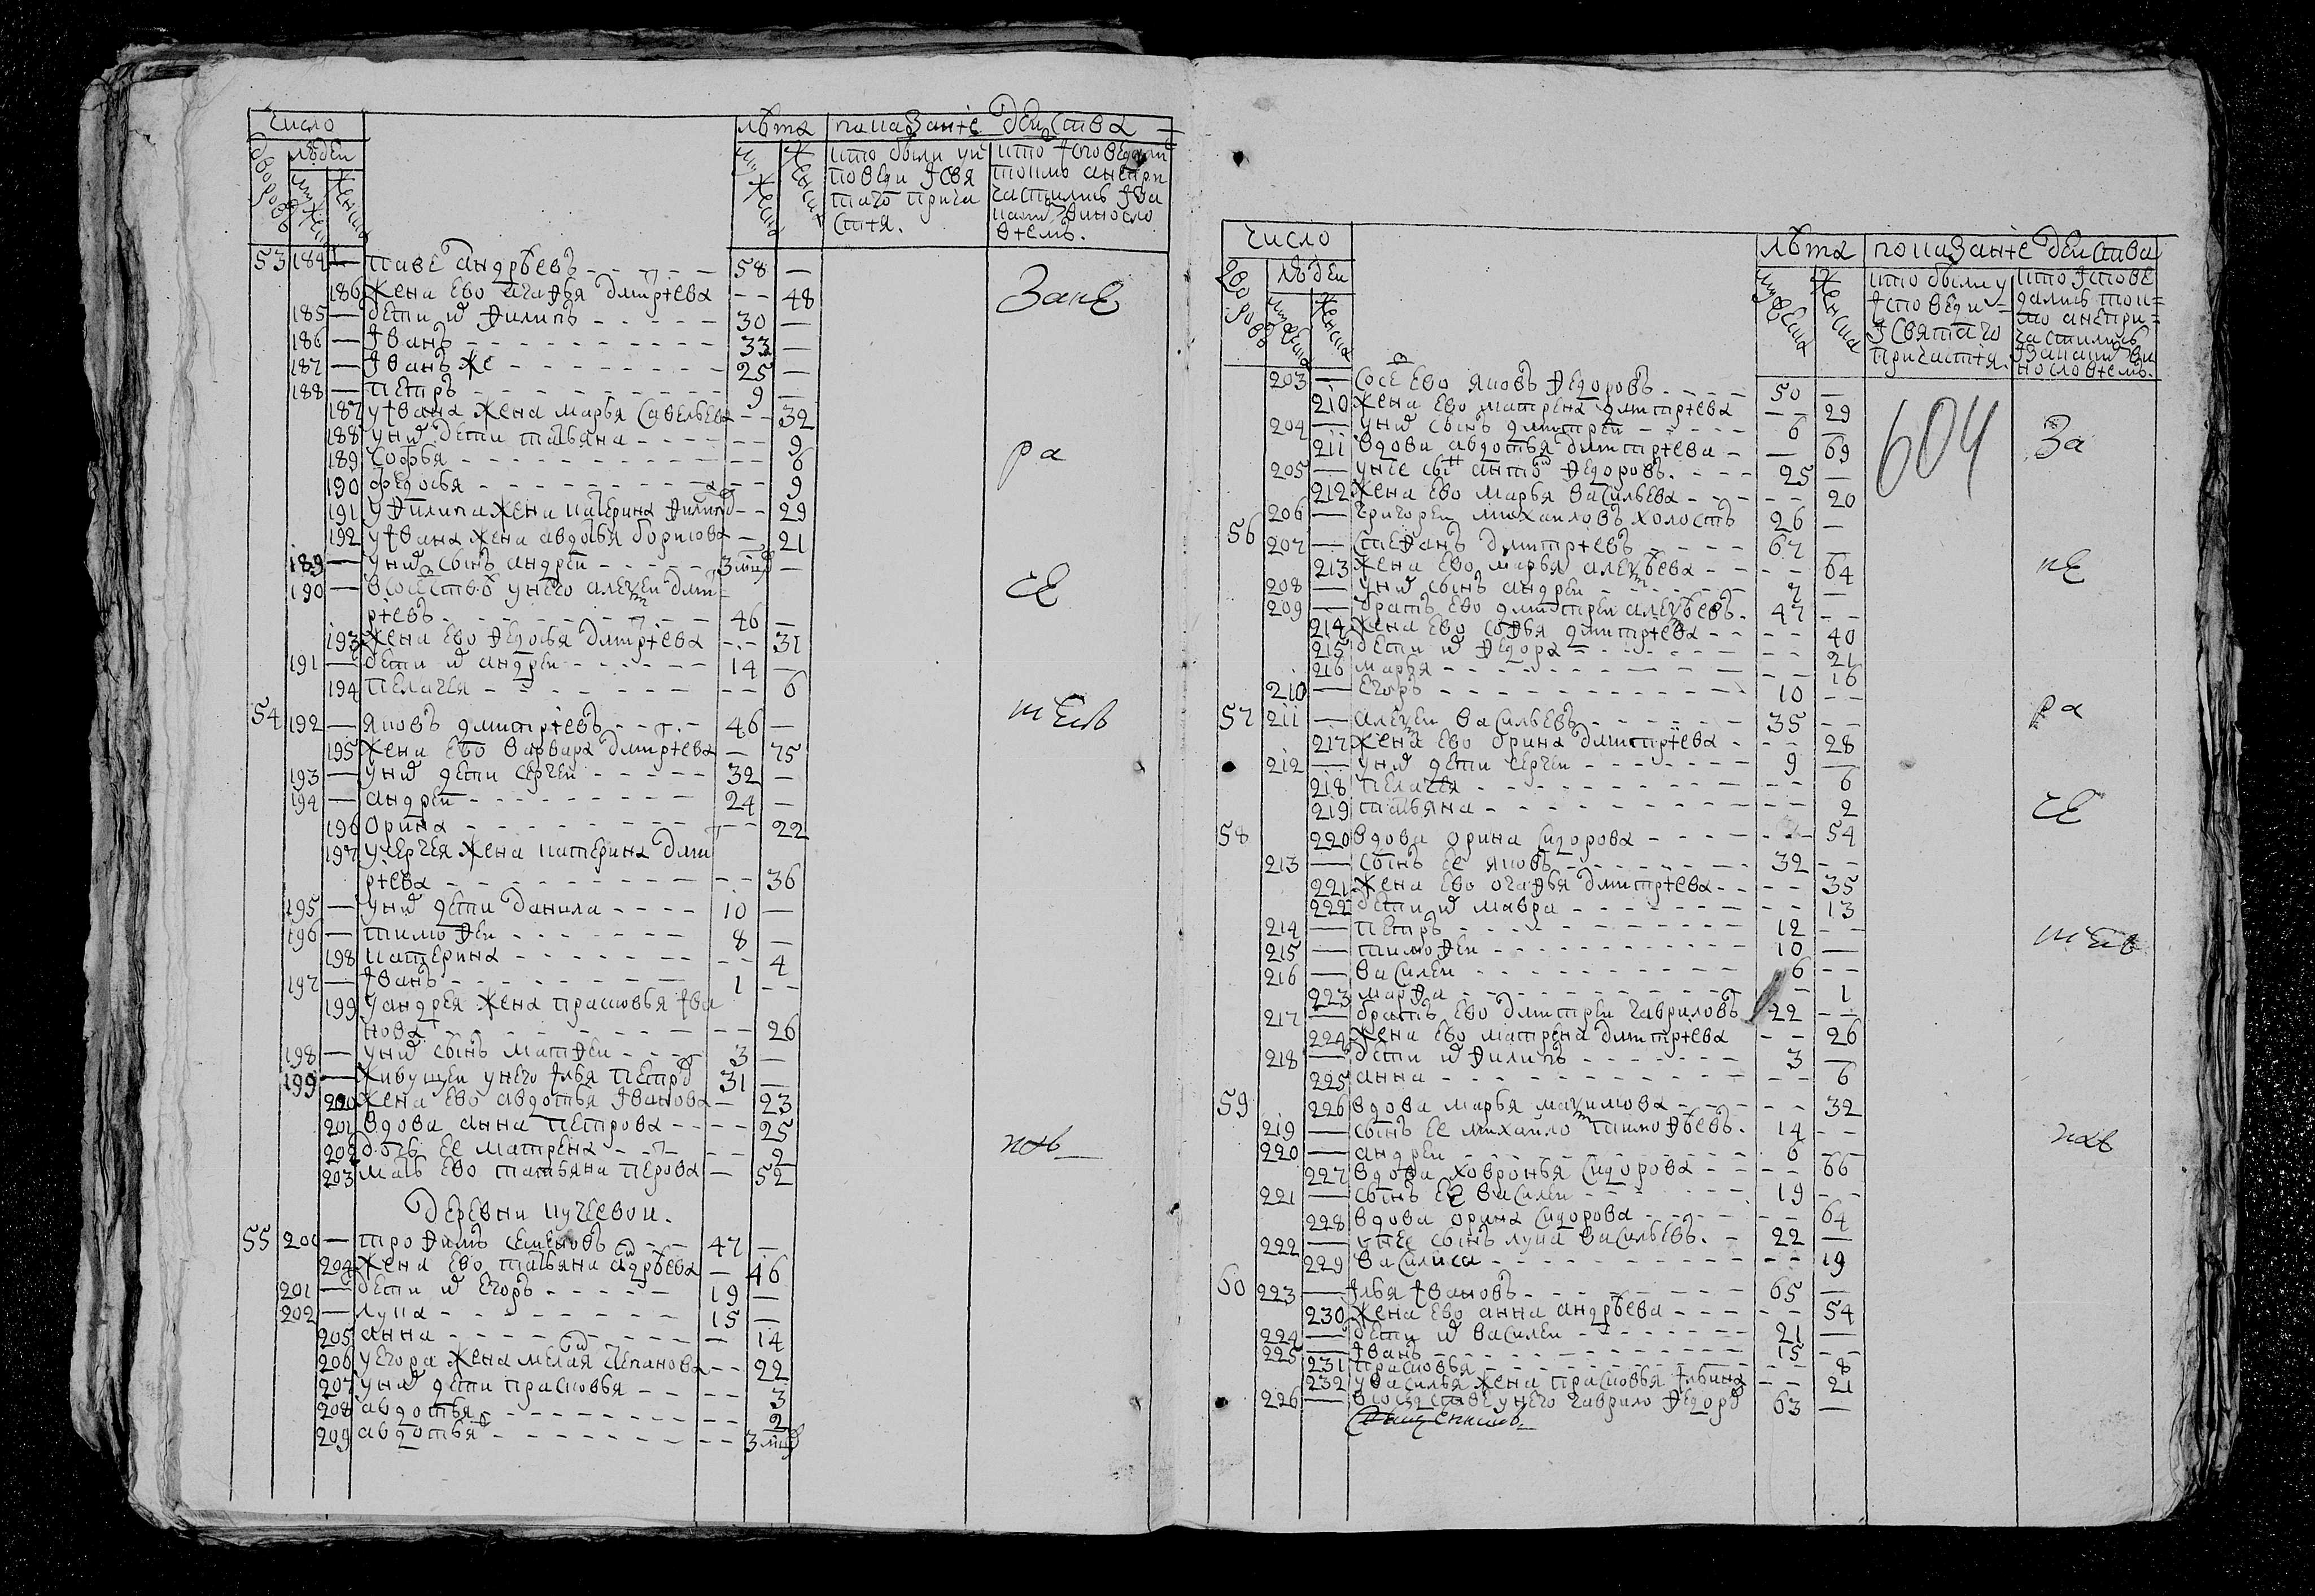 число | лѣта | показание действа
дворовъ | людей | мужеска | женска | мужеска | женска | кто были у исповеди и святаго причастия. | кто исповедались токмо а не причастились и за каким виносло втемъ.
53 184 — Паве Андрѣевъ 58 —
186 жена ево Агафья Дмитриева — 48
185 — дети их Филипъ 30 —
186 — Иванъ 33 —
187 — Иванъ же 25 —
188 — Петръ 9 —
187 у Ивана жена Марья Савельева — 32
188 у них дети Татьяна — 9
189 Софья — 6
190 Федосья — 9
191 у Филипа жена Катерина Филипо — 29
192 у Ивана жена Авдотья Борисова — 21
189 — у них сынъ Андреи 3 —
190 — в соседстве у него Алексеи Дмит
риевъ 46 —
193 жена ево Федосья Дмитриева — 31
191 — дети их Андреи 14 —
194 Пелагея — 6
54 192 — Яковъ Дмитриевъ 46 —
195 жена ево Варвара Дмитриева — 75
193 — у них дети Сергеи 32 —
194 — Андреи 24 —
196 Орина — 22
197 у Сергея жена Катерина Дмит
риева — 36
195 — у них дети Данила 10 —
196 — Тимофеи 8 —
198 Катерина — 4
197 — Иванъ 1 —
199 у Андрея жена Прасковья Ива
нова — 26
198 — у них сынъ Матфеи 3 —
199 — живущеи у него Илья Петро 31 —
200 жена ево Авдотья Иванова — 23
201 вдова Анна Петрова — 25
202 дочь ее Матрена — 2
203 мать ево Татьяна Перова — 52
Деревни Кучеевои.
55 200 — Трофимъ Семеновъ 47 —
204 жена ево Татьяна Андрѣева — 46
201 — дети их Егоръ 19 —
202 — Лука 15 —
205 Анна — 14
206 у Егора жена Мелания Степанова — 22
207 у них дети Прасковья — 3
208 Авдотья — 2
209 Авдотья — 3
Запе
ра
се
тець
попъ
число | лѣта | показание действа
дворовъ | людей | мужеска | женска | мужеска | женска | кто были у исповеди и святаго причастия. | кто исповедались токмо а не причастились и за каким виносло втемъ.
203 — сосе ево Яковъ Федоровъ 50 —
210 жена ево Матрена Дмитриева — 29
204 — у них сынъ Дмитреи 6 —
211 вдова Авдотья Дмитриева — 69
205 — у нее сын Антон Федоровъ. 25 —
212 жена ево Марья Васильева — 20
206 — Григореи Михаиловъ холостъ 26 —
56 207 — Стефанъ Дмитриевъ 67 —
213 жена ево Марья Алексѣева — 64
208 — у них сынъ Андреи 7 —
209 — братъ ево Дмитреи Алексѣевъ. 47 —
214 жена ево Софья Дмитриева — 40
215 дети их Федора — 21
216 Марья — 16
210 — Егоръ 10 —
57 211 — Алексеи Васильевъ 35 —
217 жена ево Орина Дмитриева — 28
212 — у них дети Сергеи 9 —
218 Пелагея — 6
219 Татьяна — 2
58 220 вдова Орина Сидорова — 54
213 — сынъ ее Яковъ 32 —
221 жена ево Огафья Дмитриева — 35
222 дети их Мавра — 13
214 — Петръ 12 —
215 — Тимофеи 10 —
216 — Василеи 6 —
223 Марфа — 1
217 — братъ ево Дмитреи Гавриловъ 22 —
224 жена ево Матрена Дмитриева — 26
218 — дети их Филипъ 3 —
225 Анна — 6
59 226 вдова Марья Максимова — 32
219 — сынъ ее Михаило Тимофѣевъ. 14 —
220 — Андреи 6 —
227 вдова Ховронья Сидорова — 66
221 — сынъ ее Василеи 19 —
228 вдова Орина Сидорова — 64
222 — у нее сынъ Лука Васильевъ. 22 —
229 Василиса — 19
60 223 — Илья Ивановъ 65 —
230 жена ево Анна Андрѣева — 54
224 — дети их Василеи 21 —
225 — Иванъ 15 —
231 Прасковья — 8
232 у Василья жена Прасковья Ильина — 21
226 — в соседстве у него Гаврило Федоро 63 —
604
За
пе
ра
се
тець